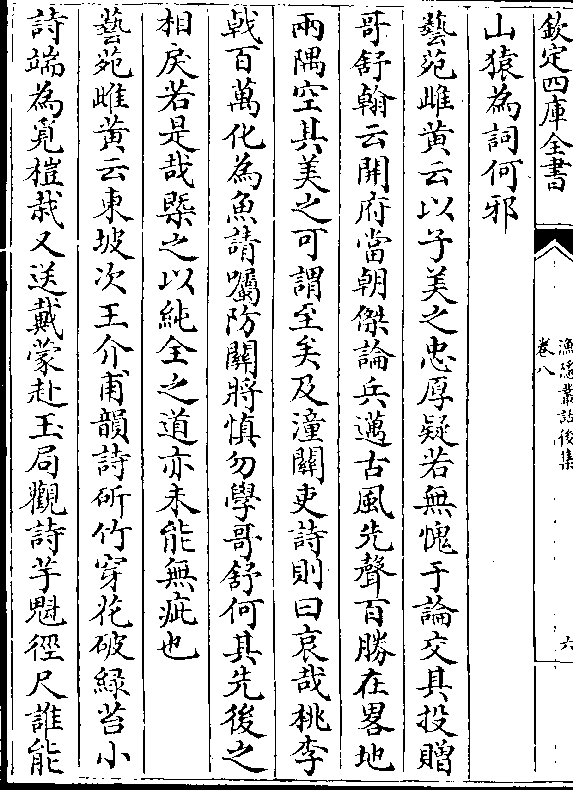 欽定四庫全書
漁隱叢話後集
卷八
六
山猿為詞何邪
藝苑雌黃云以子美之忠厚疑若無愧于論交其投贈
哥舒翰云開府當朝傑論兵邁古風先聲百勝在畧地
兩隅空其美之可謂至矣及潼關吏詩則曰哀哉桃李
戰百萬化為魚請囑防關將慎勿學哥舒何其先後之
相戾若是哉槩之以純全之道亦未能無疵也
藝苑雌黃云東坡次王介甫韻詩斫竹穿花破緑苔小
詩端為覓榿栽又送戴蒙赴玉局觀詩芋魁徑尺誰能